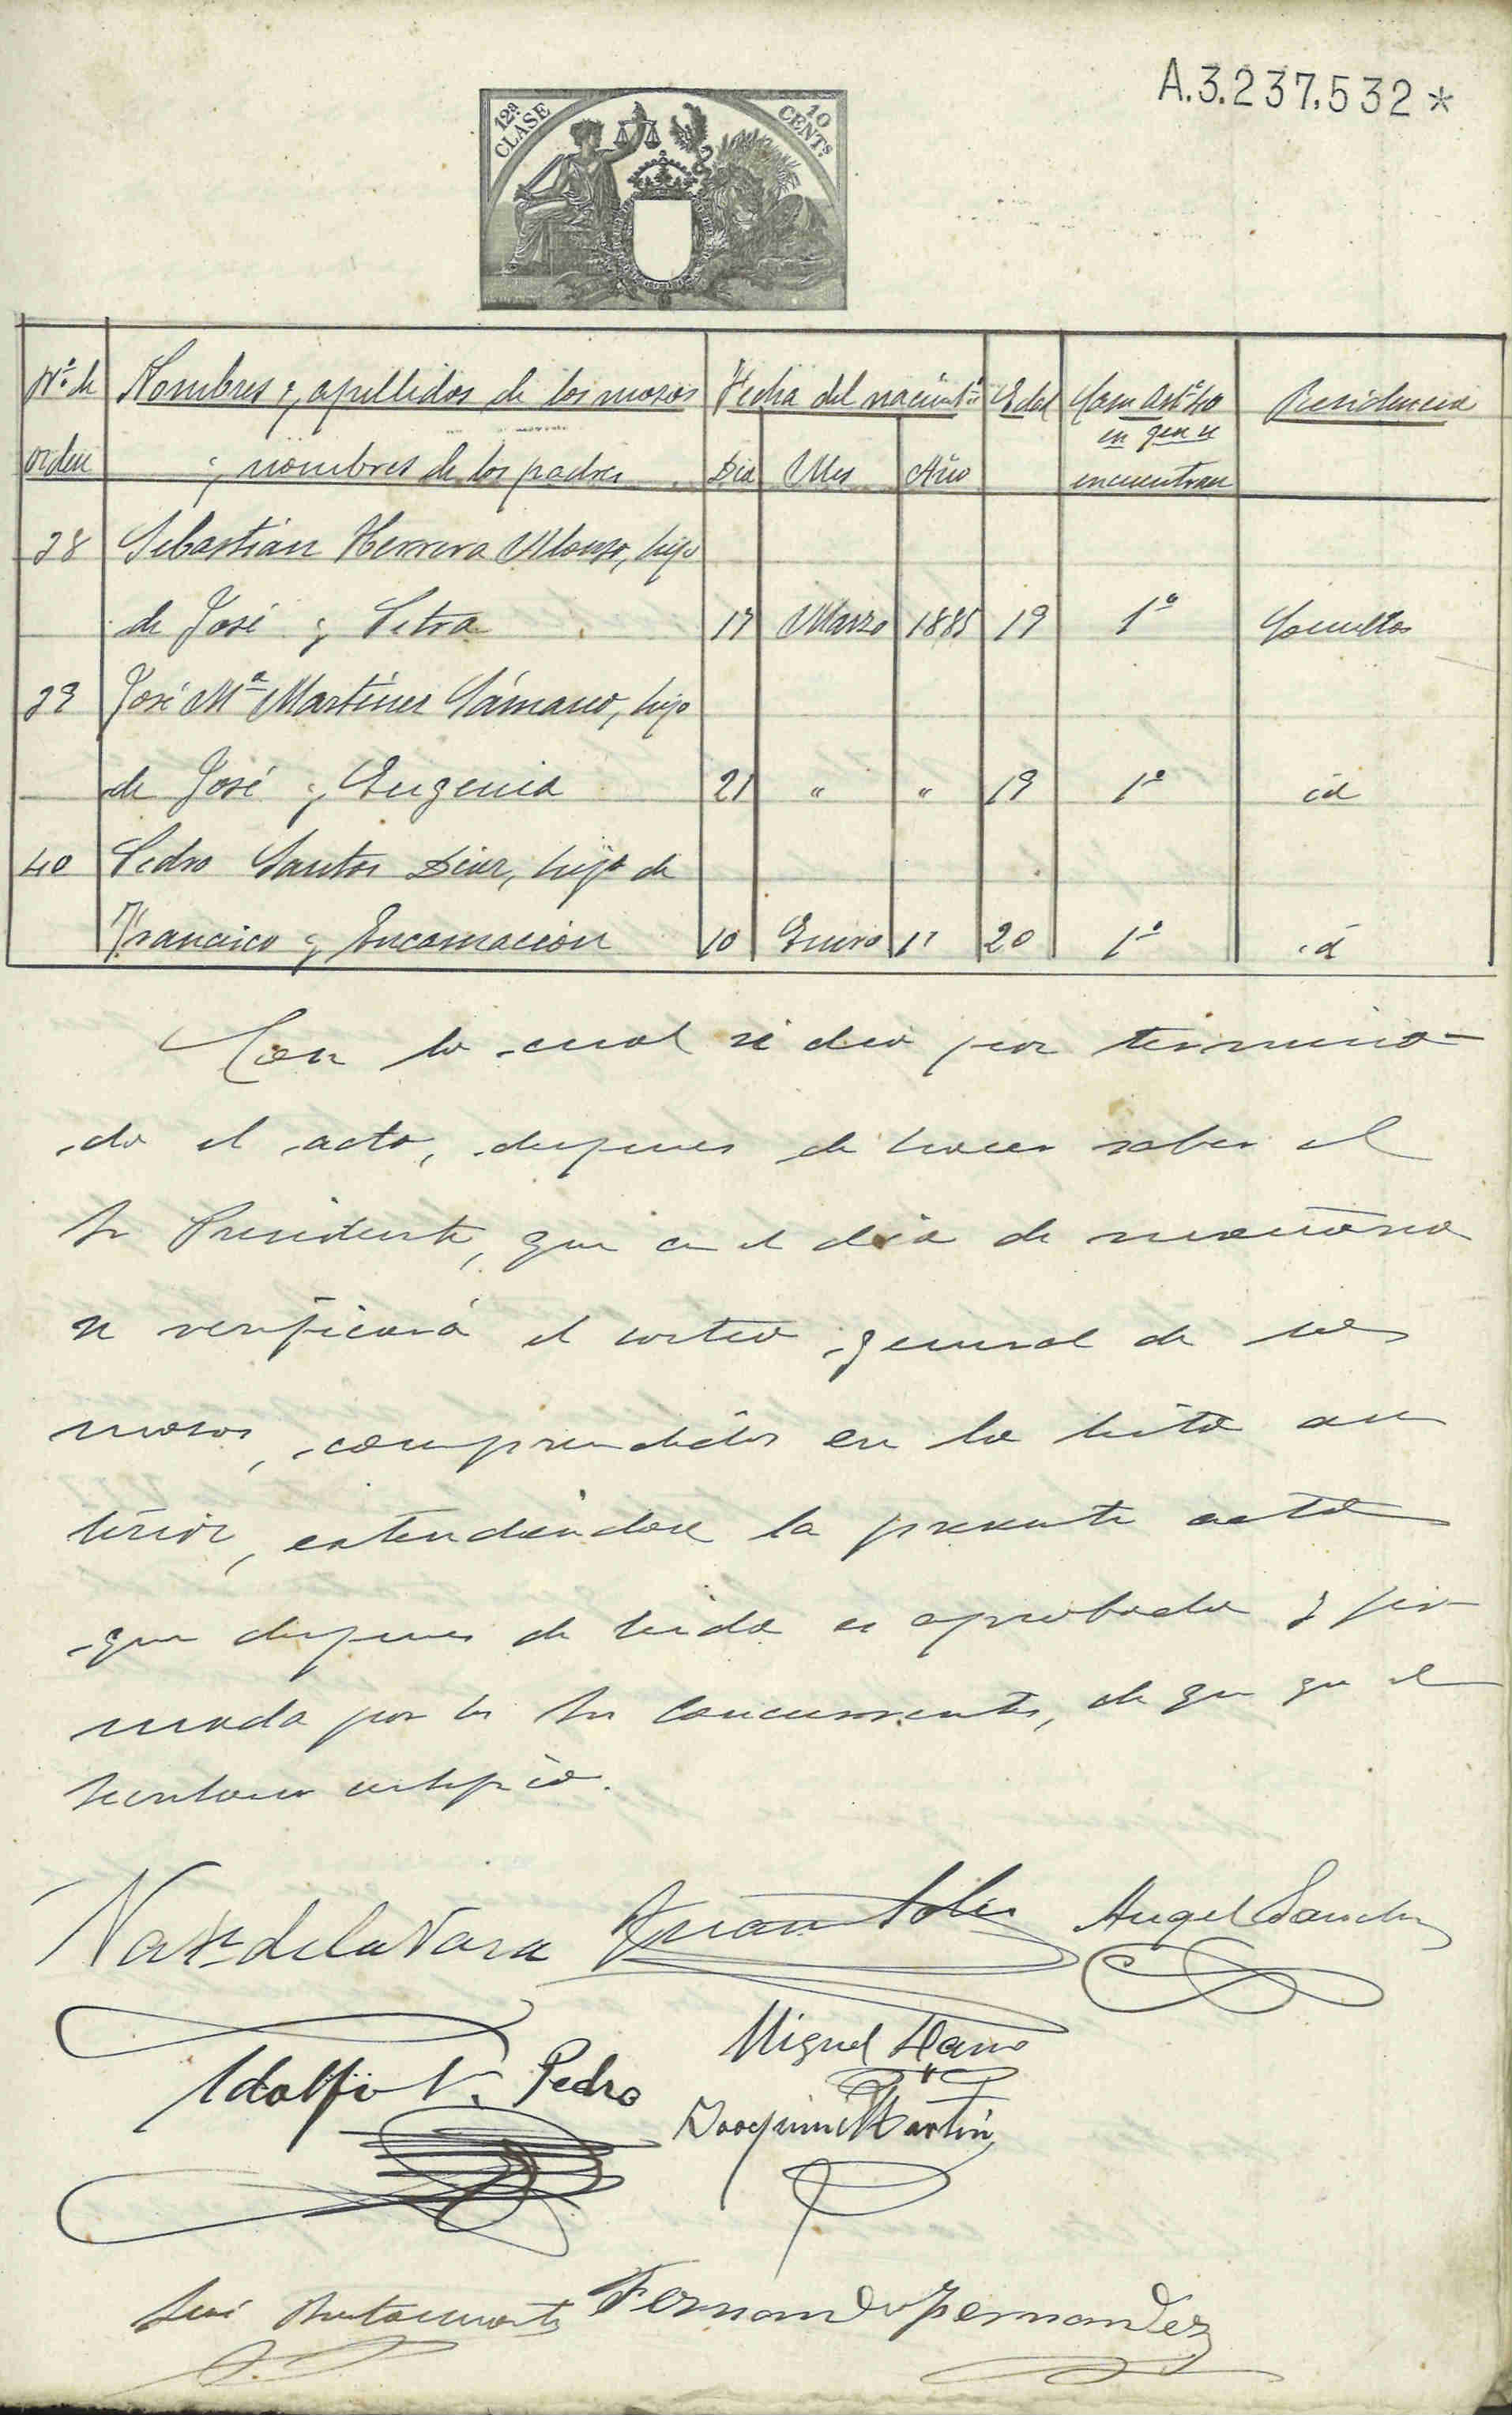 A.3.237.532*
12ª CLASE
10 CENTs
Nº de Nombres y apellidos de los mozos Fecha del nacimtº Edad Caso Artº 40 Residencia
en que se
orden y nombres de los padres Dia Mes Año encuentran
38 Sebastián Herrera Alonso, hijo
de José y Petra 17 Marzo 1885 19 1º
39 José Mª Martínez Sámano, hijo
de José y Eugenia 21 " " 19 1º id
40 Pedro Santos Diez, hijo de
Francisco y Encarnación 10 Enero 20 1º id
Con lo cual se dió por termina-
do el acto, despues de hacer saber el
Sr Presidente, que en el dia de mañana
se verificará el sorteo general de los
mozos, comprendidos en la lista an
terior, extendiendose la presente acta
que despues de leida es aprobada y fir-
mada por los Srs Concurrentes, de que yo el
Secretario certifico.
de la Vara Juan Soler Angel Sanchez
Miguel Haro
Adolfo V. Pedro
Joaquin Martin
José Bustamante Fernando Fernandez